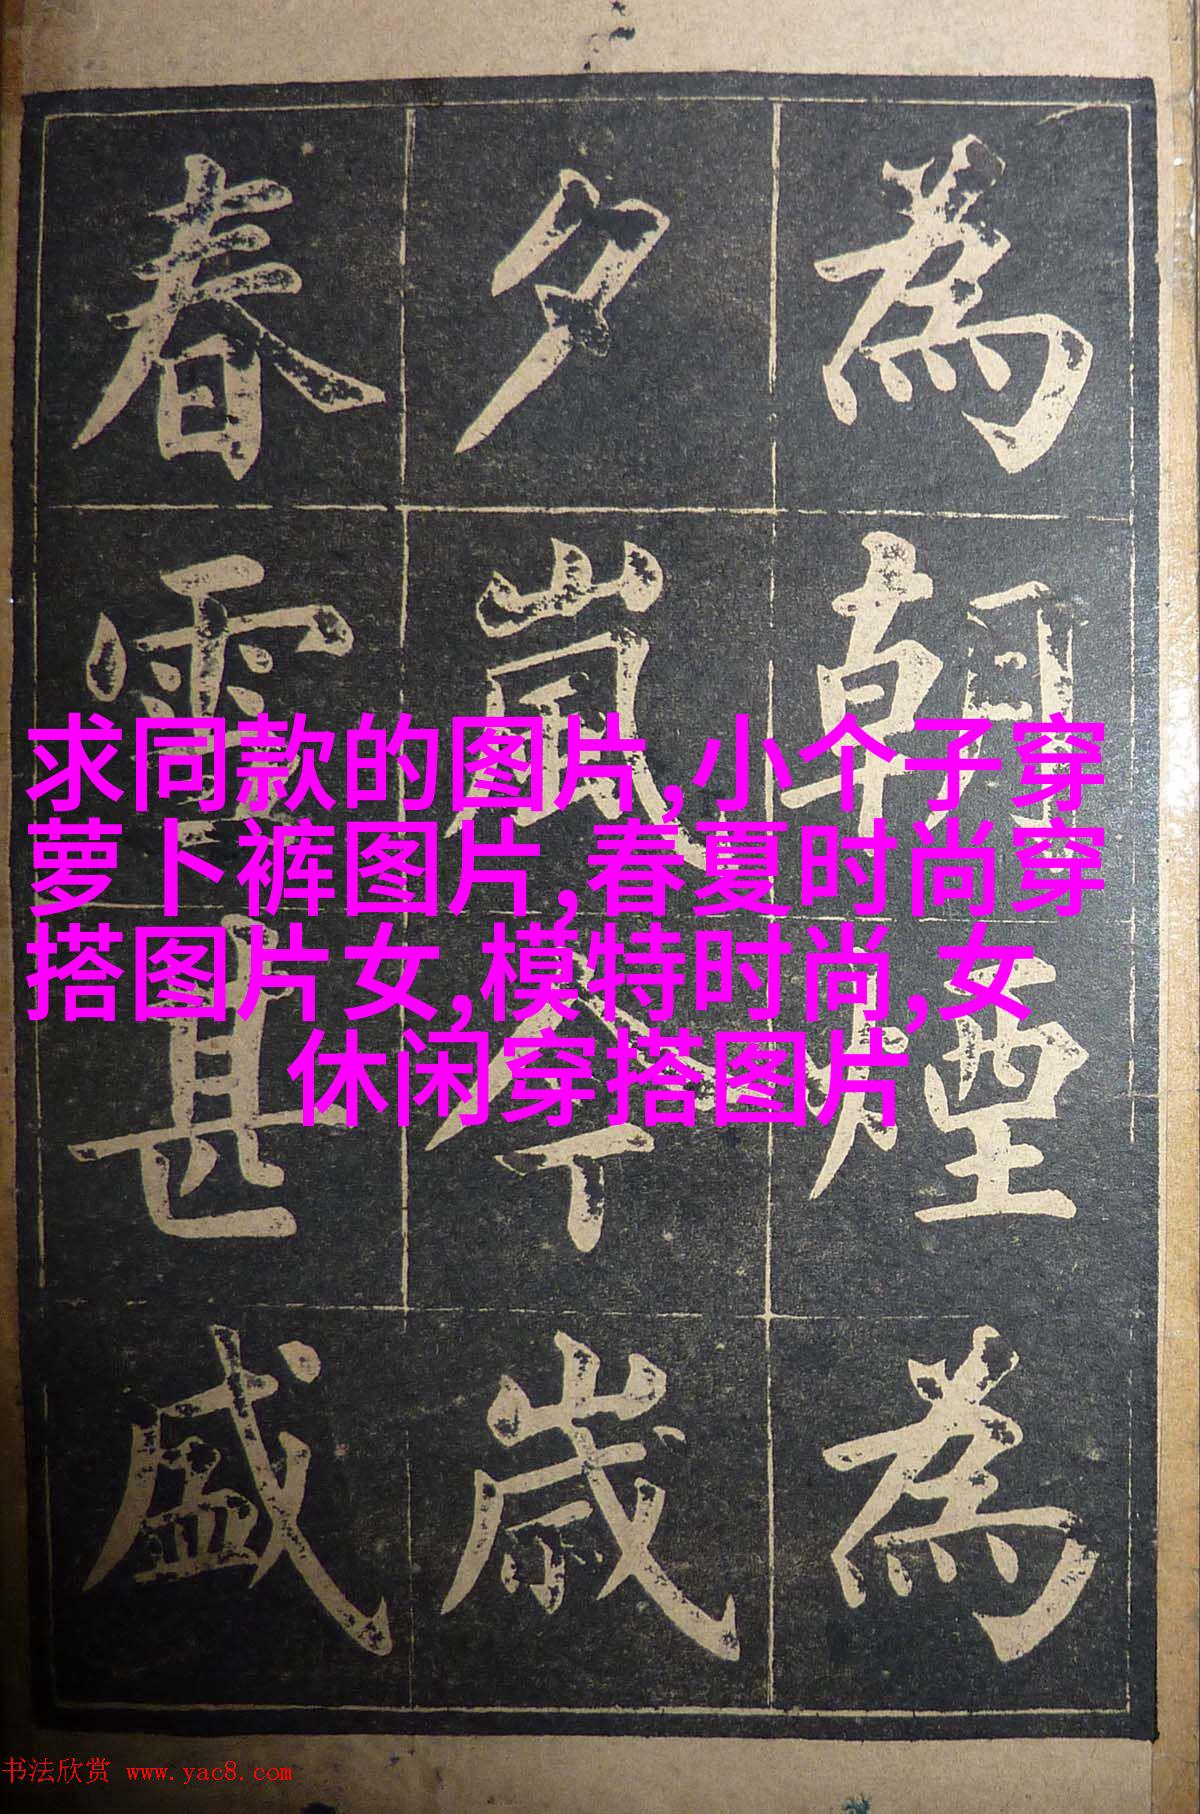 為朝煙為
夕嵐今歲
春雪甚盛
求同款的图片,小个子穿
萝卜裤图片,春夏时尚穿
搭图片女,模特时尚,女
休闲穿搭图片
书法欣赏 www.yac8.com